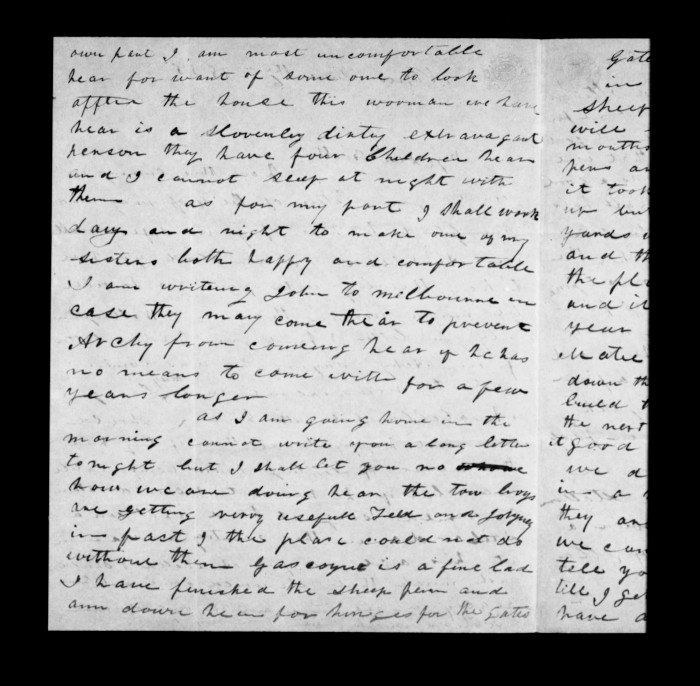 own part I am most uncomfortable
hear for want of some one to look
affter the house this wooman we have
hear is a slovenley dirtey extravagant
person they have four Children hear
and I cannot sleep at night with
them as for my part I shall work
day and night to make one of my
sisters both happy and comfortable
I am writeing John to milbourne in
case they may come thear to prevent
Archy from comeing hear if he has
no means to come with for a few
years longer
as I am going home in the
morning cannot write you a long letter
tonight but I shall let you no
how we are doing hear the tow boys
are getting verry usefull and
in fact I the plase could not do
without them Gascoyne is a fine lad
I have finished the sheep penn and
am down hear for hinges for the gates
Gate
in
sheep
will
months
pens an
it took
up but
yards
and th
the pl
and it
year
down th
build t
the next
it good
we d
in a
they an
we can
tell yo
till I get
have a